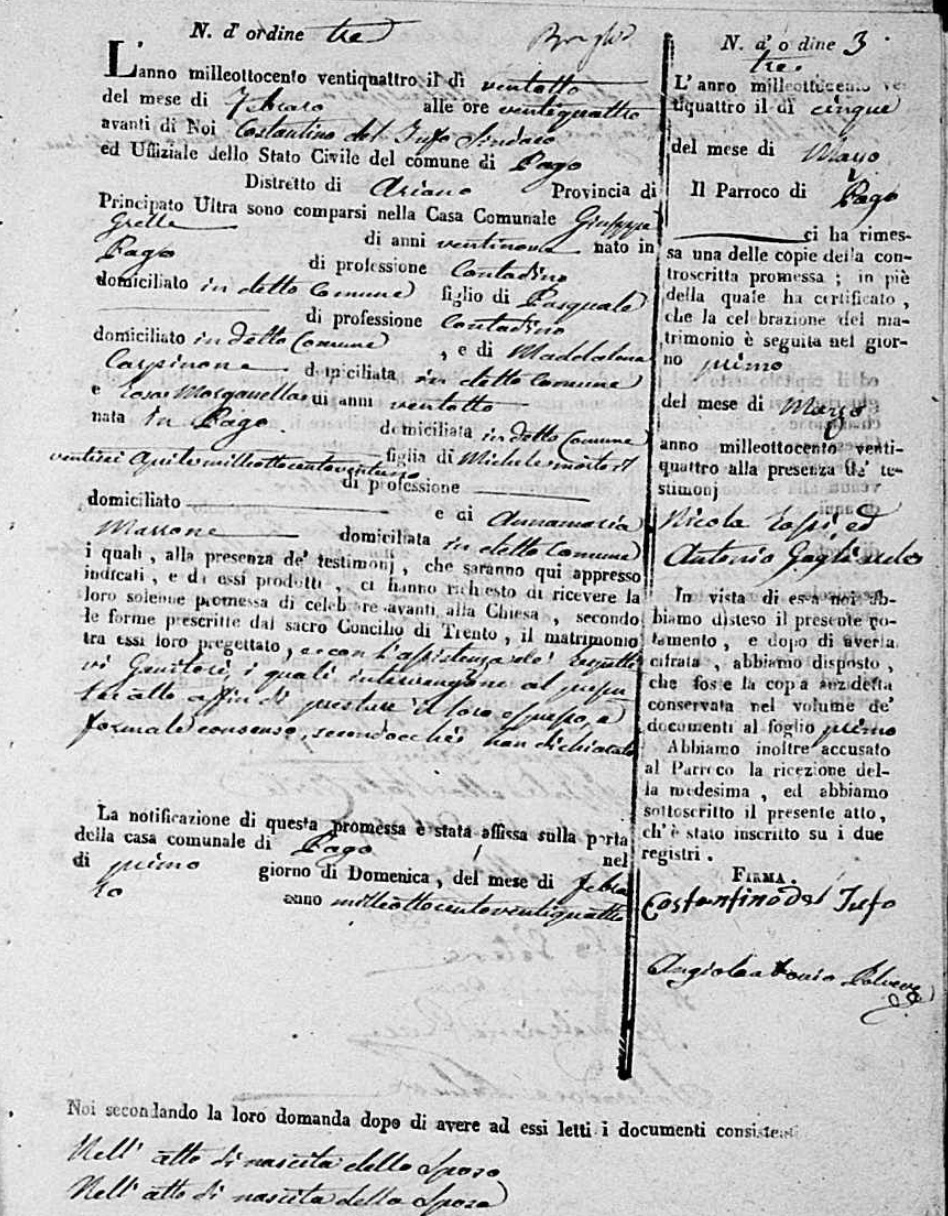 N. d'ordine tre
L'anno milleottocento ventiquattro il dì ventotto
del mese di Febraro alle ore ventiquattro
avanti di Noi Costantino del Tufo Sindaco
ed Uffiziale dello Stato Civile del comune di Pago
Distretto di Ariano Provincia di
Principato Ultra sono comparsi nella Casa Comunale Giuseppe
Grella di anni ventinove nato in
Pago di professione Contadino
domiciliato in detto Comune figlio di Pasquale
di professione Contadino
domiciliato in detto Comune, e di Maddalena
Carpinone domiciliata in detto Comune
e Rosa Morganella di anni ventotto
nata in Pago domiciliata in detto Comune
figlia di Michele morto il
ventisei Aprile milleottocentoventuno di professione
domiciliato e di Annamaria
Marrone domiciliata in detto Comune
i quali, alla presenza de' testimonj, che saranno qui appresso
indicati, e da essi prodotti, ci hanno richiesto di ricevere la
loro solenne promessa di celebrare avanti alla Chiesa, secondo
le forme prescritte dal sacro Concilio di Trento, il matrimonio
tra essi loro progettato, e con l'assistenza de' rispetti
vi Genitori, i quali intervengono al presen
te atto affin di prestare il loro espresso, e
formale consenso, secondocchè han dichiarato
La notificazione di questa promessa è stata affissa sulla porta
della casa comunale di Pago nel
dì primo giorno di Domenica, del mese di Febra
ro anno milleottocentoventiquattro
Noi secondando la loro domanda dopo di avere ad essi letti i documenti consistenti
Nell' atto di nascita dello Sposo
Nell' atto di nascita della Sposa
N. d'o dine 3
tre.
L'anno milleottocento ve
tiquattro il dì cinque
del mese di Marzo
Il Parroco di Pago
ci ha rimes-
sa una delle copie della con-
troscritta promessa; in piè
della quale ha certificato,
che la celebrazione del ma-
trimonio è seguita nel gior-
no primo
del mese di Marzo
anno milleottocento venti-
quattro alla presenza de' te-
stimonj
Nicola ed
Antonio
In vista di essa noi ab-
biamo disteso il presente no-
tamento, e dopo di averla
cifrata, abbiamo disposto,
che fosse la copia anzidetta
conservata nel volume de'
documenti al foglio primo
Abbiamo inoltre accusato
al Parroco la ricezione del-
la medesima, ed abbiamo
sottoscritto il presente atto,
ch'è stato inscritto su i due
registri.
FIRMA.
Costantino del Tufo
Angiolantonio Polvere